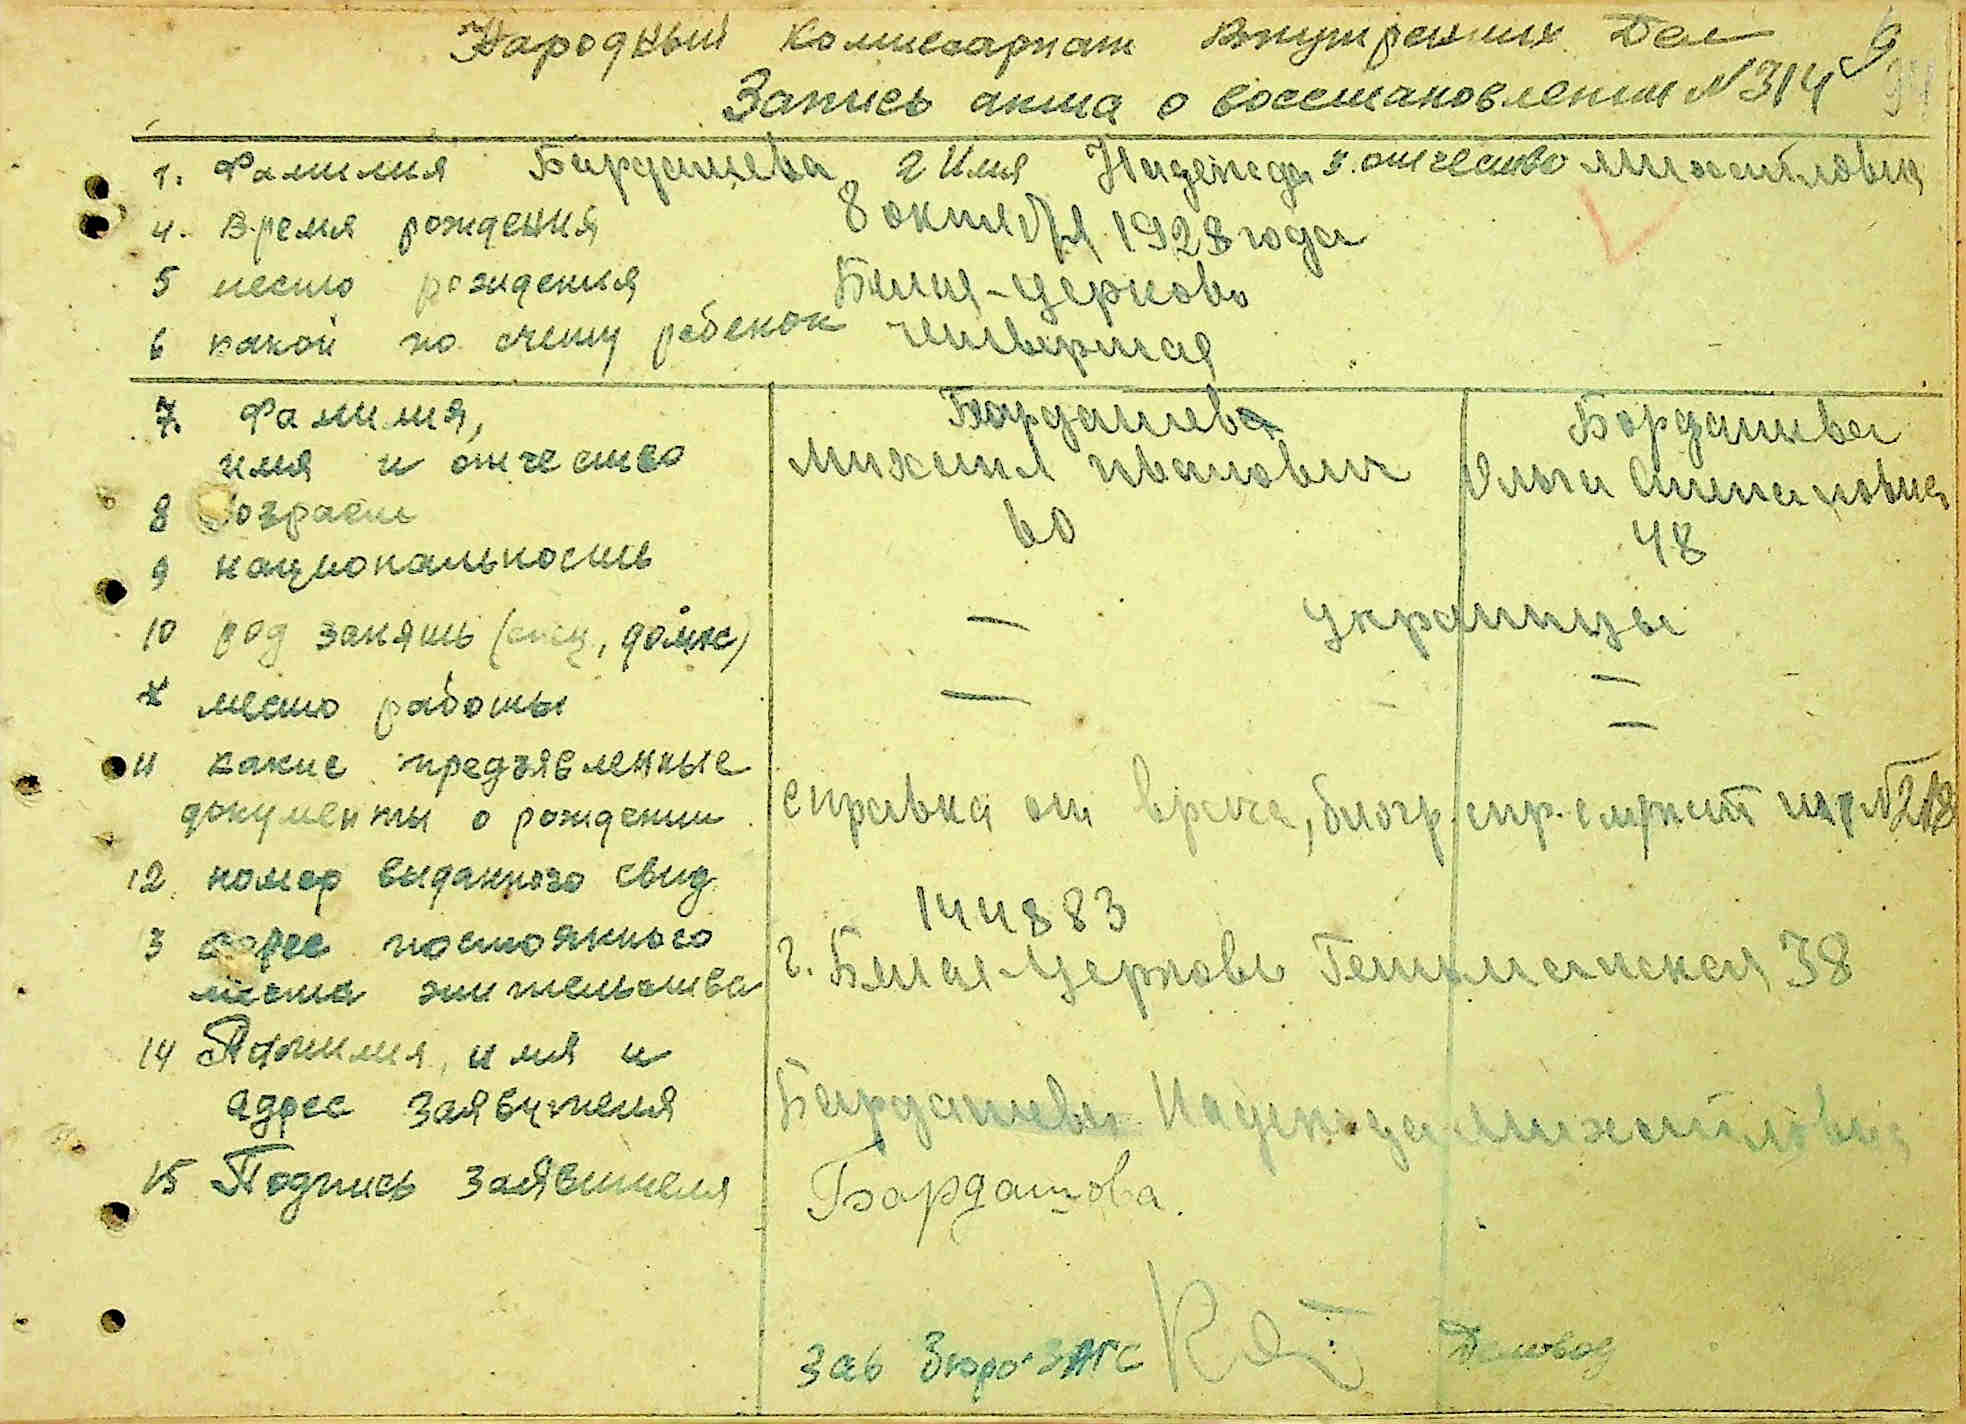 Народный Комиссариат Внутренних Дел
Запись акта о восстановлении N 314
1. Фамилия Бардашева 2 Имя Надежда 3. отчество Михайловна
4. Время рождения 8 октября 1928 года
5 место рождения Белая-Церковь
6 какой по счету ребенок четвертая
7. Фамилия, Бардашева Бордашева
имя и отчество Михаил Иванович Ольга Степановна
8 возраст 60 48
9 национальность украинцы
10 род занять (спец, домк) — —
место работы — —
11 какие предъявленные
документы о рождении справка от врача, биогр.
12 номер выданного свид. 144883
13 адрес постоянного г. Белая-Церковь Гетьманская 38
места жительства
14 Фамилия, имя и
адрес заявителя Бардашева Надежда Михайловна
15 Подпись заявителя Бардашова.
Зав Бюро ЗАГС Деловод